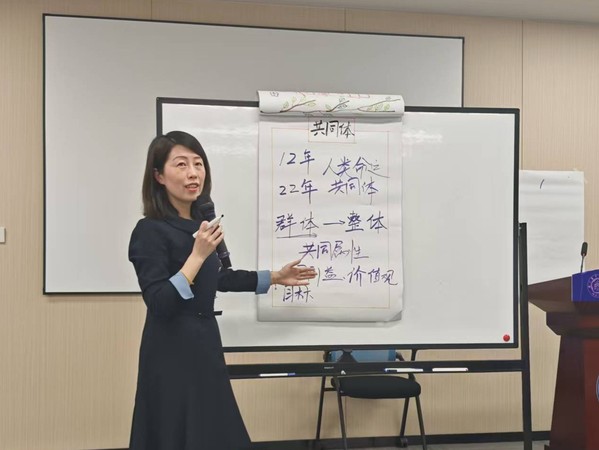 共同体
12年 人类命运
22年 共同体
群体→整体
共同属性
益、价值观
目标